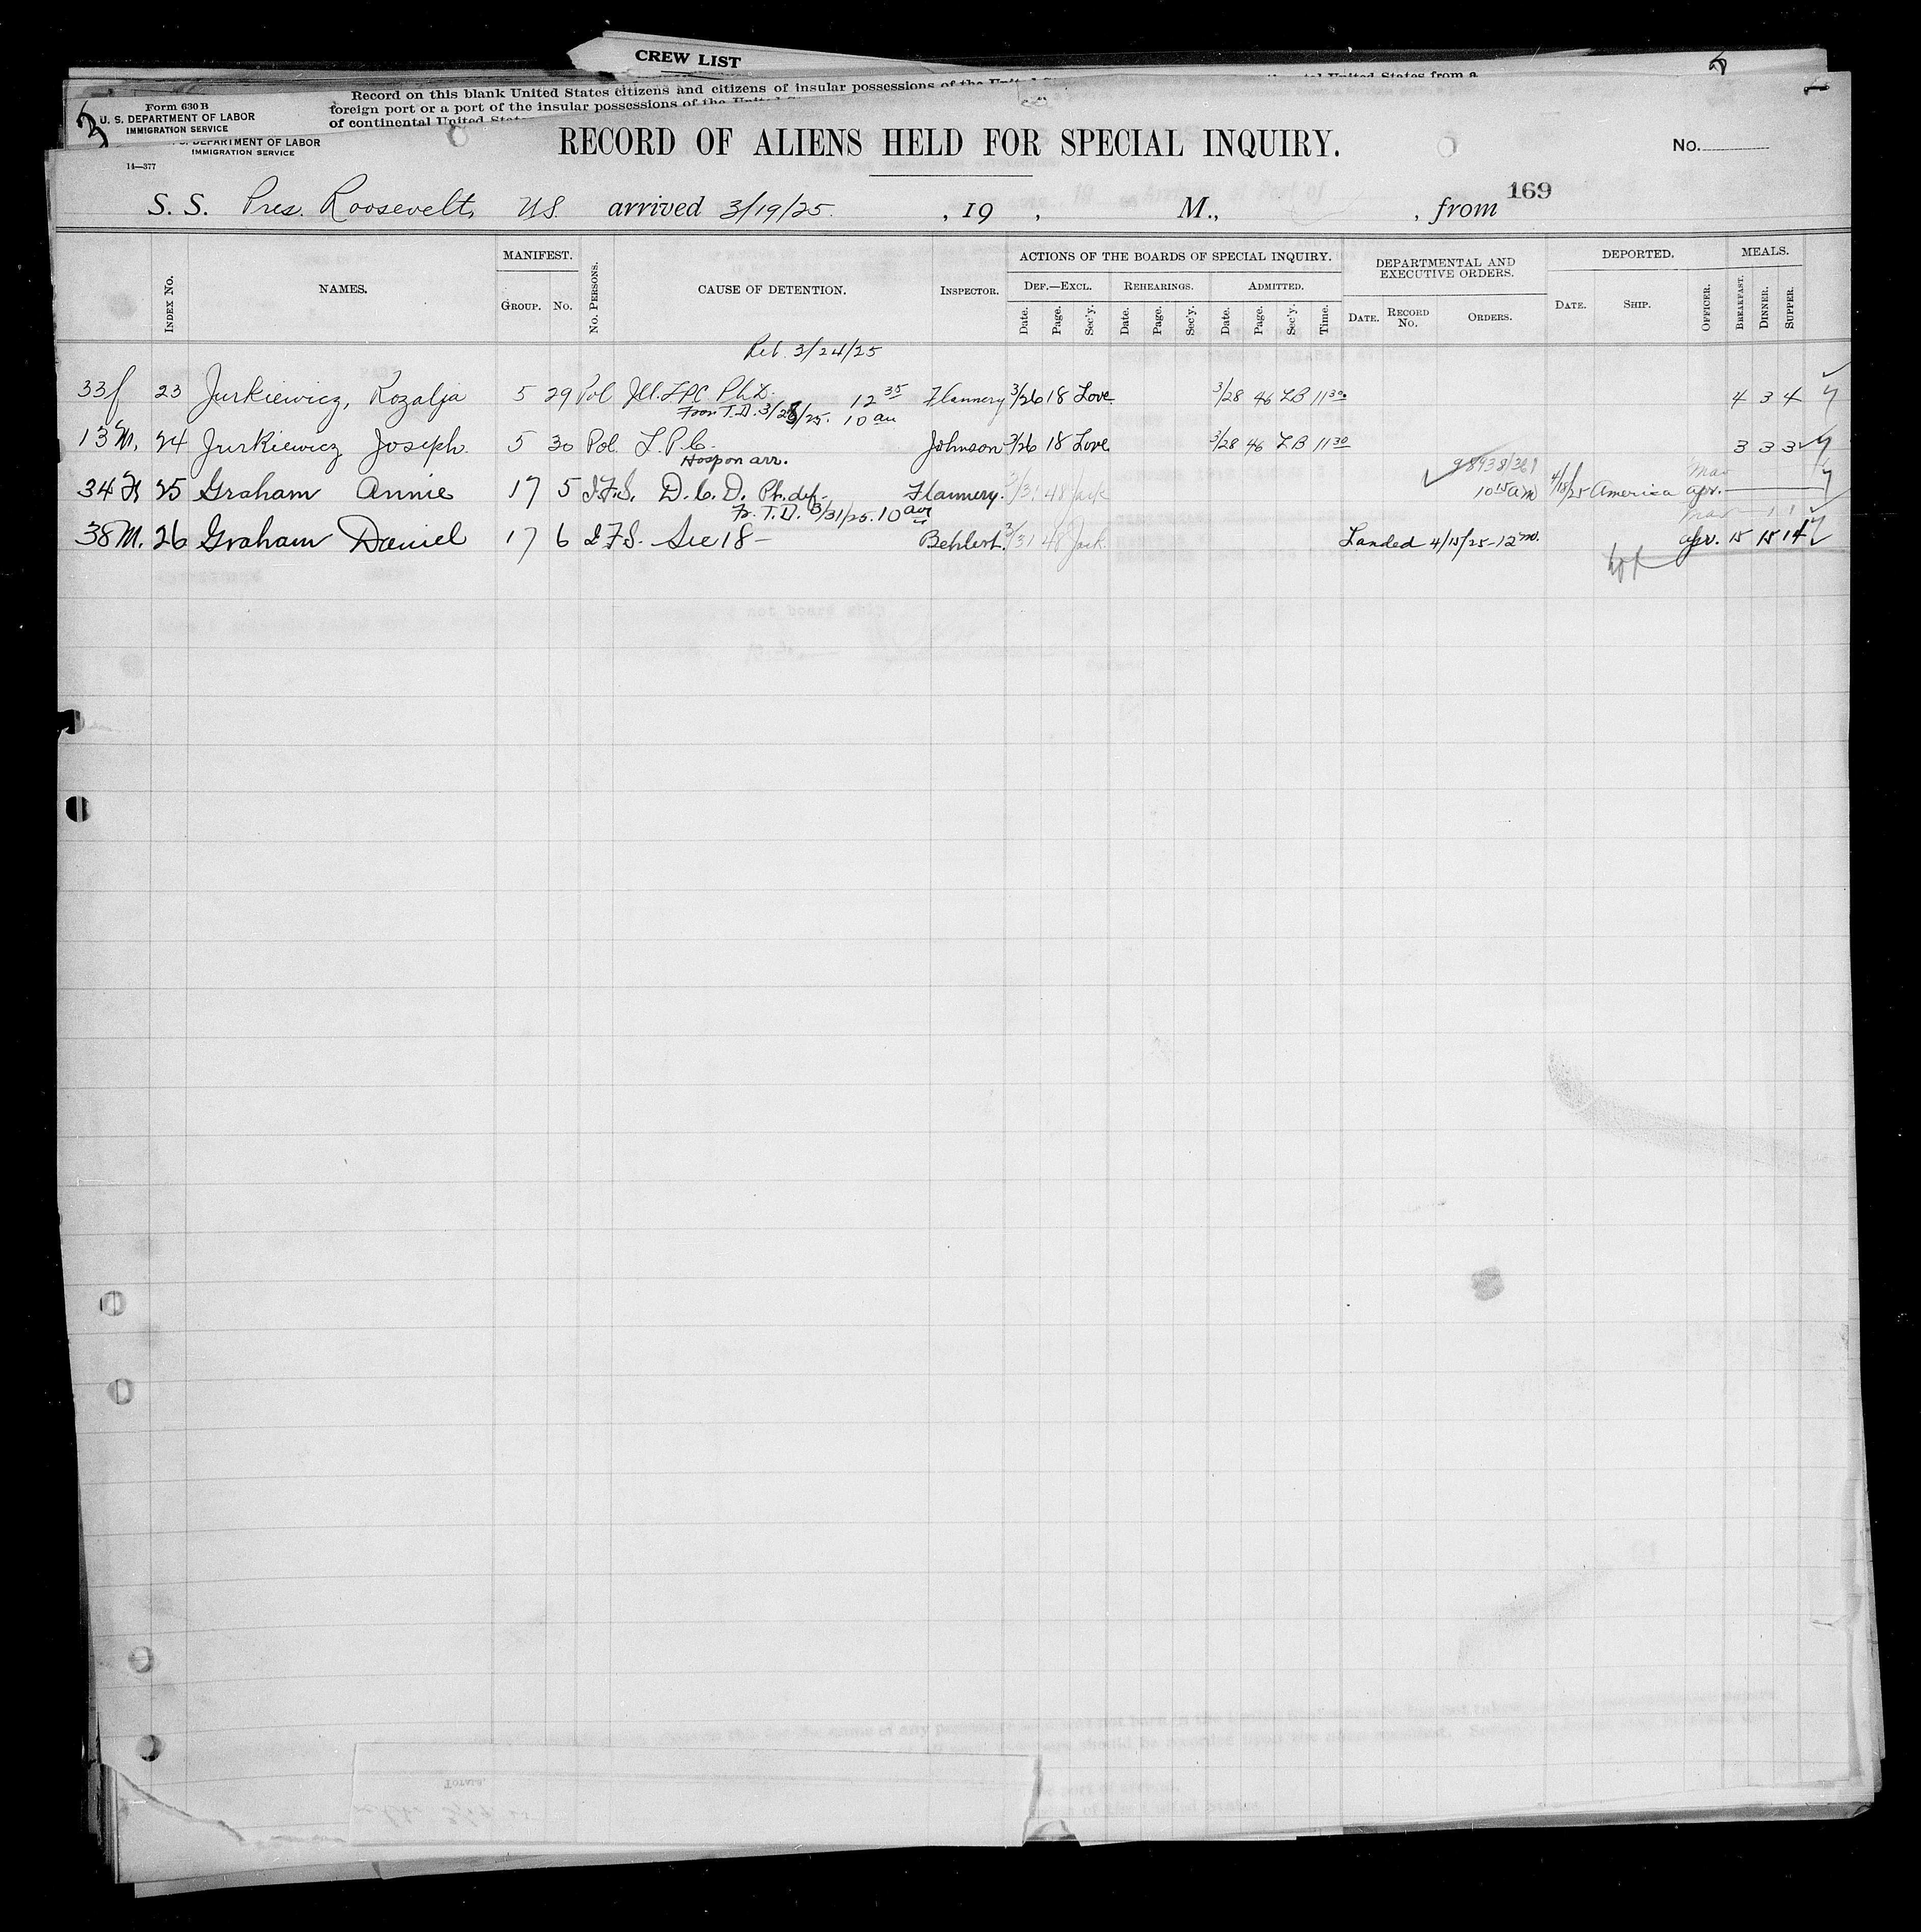 CREW LIST
Record on this blank United States citizens and citizens of insular possessions of the United
foreign port or a port of the insular possessions of the United
of continental United
United States from a
3
Form 630 B
U. S. DEPARTMENT OF LABOR
IMMIGRATION SERVICE
DEPARTMENT OF LABOR
IMMIGRATION SERVICE
14—377
RECORD OF ALIENS HELD FOR SPECIAL INQUIRY.
No.
169
S. S. Pres. Roosevelt, US. arrived 3/19/25. , 19 , M., , from
INDEX No. NAMES. MANIFEST. GROUP. No. No. PERSONS. CAUSE OF DETENTION. INSPECTOR. ACTIONS OF THE BOARDS OF SPECIAL INQUIRY. DEPARTMENTAL AND EXECUTIVE ORDERS. DEPORTED. MEALS.
DEF.—EXCL. REHEARINGS. ADMITTED.
Date. Page. Sec'y. Date. Page. Sec'y. Date. Page. Sec'y. Time. DATE. RECORD No. ORDERS. DATE. SHIP. OFFICER. BREAKFAST. DINNER. SUPPER.
3/24/25
33 f 23 Jurkiewicz, Rozalja 5 29 Pol Ill. LPC Ph.D. 12 35 Flannery 3/26 18 Love 3/28 46 LB 11 30 4 3 4
From T.D. 3/25. 10 am
13 M. 24 Jurkiewicz Joseph. 5 30 Pol. L.P.C. Johnson 3/26 18 Love 3/28 46 LB 11 30 3 3 3
Hosp on arr.
98938/361 Mar
34 F 25 Graham Annie 17 5 I.F.S. D.C.D. Ph. def. Flannery. 3/31 48 Jack 10 15 am 4/18/25 America Apr.
Fr. T.D. 3/31/25. 10 am
Mar 1 1
38 M. 26 Graham Daniel 17 6 I.F.S. See 18 — Behlert. 3/31 48 Jack. Landed 4/15/25 - 12 m. Apr. 15 15 14
not board ship
TOTALS.